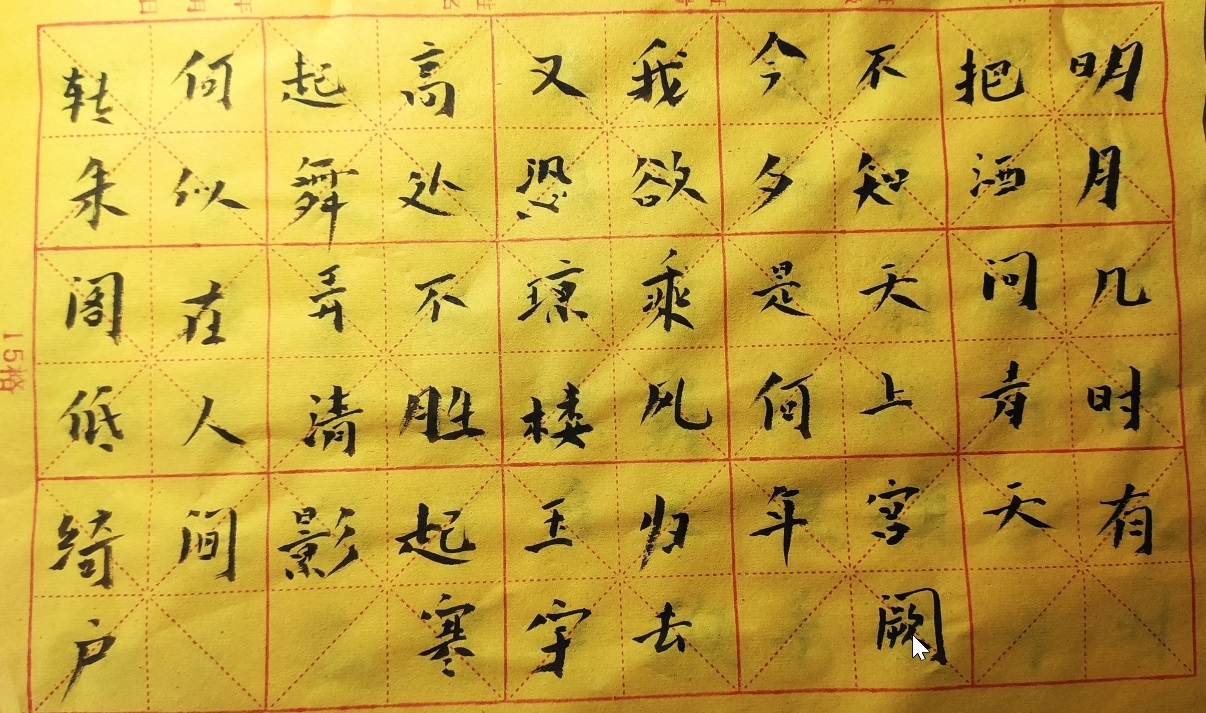 明月几时有
把酒问青天
不知天上宫阙
今夕是何年
我欲乘风归去
又恐琼楼玉宇
高处不胜起寒
起舞弄清影
何似在人间
转朱阁低绮户
15格